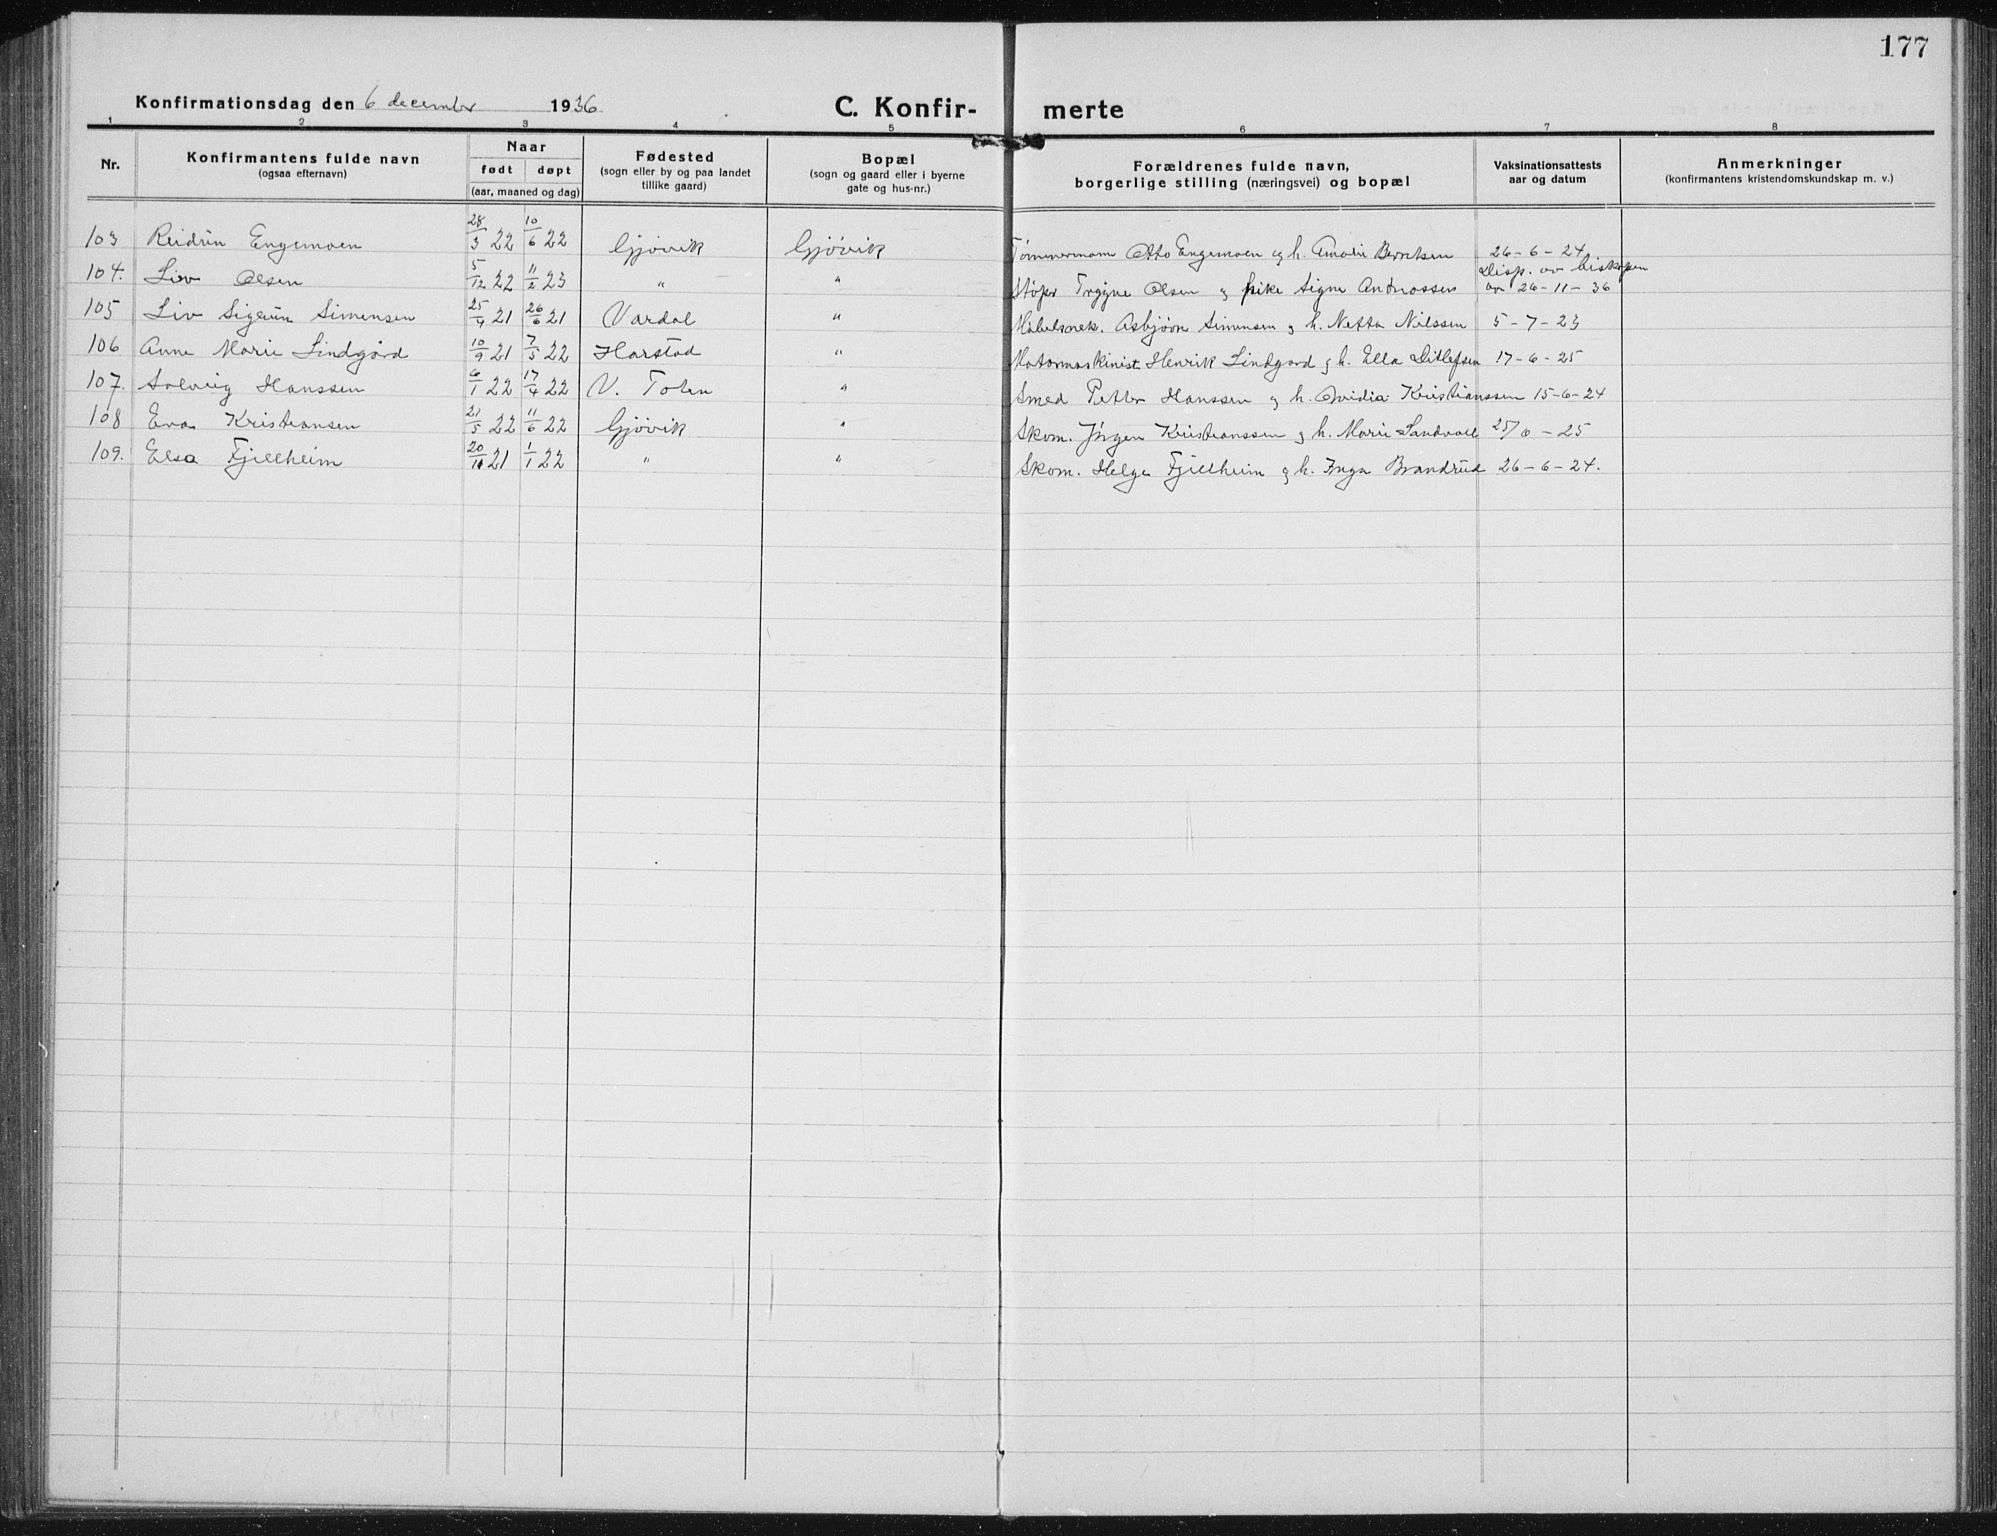 177
Konfirmationsdag den 6 december 1936. C. Konfir- merte
1 2 3 4 5 6 7 8
Nr. Konfirmantens fulde navn (ogsaa efternavn) Naar født døpt (aar, maaned og dag) Fødested (sogn eller by og paa landet tillike gaard) Bopæl (sogn og gaard eller i byerne gate og hus-nr.) Forældrenes fulde navn, borgerlige stilling (næringsvei) og bopæl Vaksinationsattests aar og datum Anmerkninger (konfirmantens kristendomskundskap m. v.)
103 Reidun Engemoen 28/3 22 10/6 22 Gjövik Gjövik Tömmermann Otto Engemoen og h. Amalie Berntsen 26-6-24
104. Liv Olsen 5/12 22 11/2 23 " " Stöper Trygve Olsen og pike Signe Andreassen Disp. av biskopen av 26-11-36
105 Liv Sigrun Simensen 25/4 21 26/6 21 Vardal " Möbelsnek. Asbjörn Simensen og h. Netta Nilssen 5-7-23
106 Anne Marie Lindgård 10/9 21 7/5 22 Harstad " Motormaskinist Henrik Lindgard og h. Ella Ditlefsen 17-6-25
107. Solveig Hanssen 6/1 22 17/4 22 V. Toten " Smed Petter Hanssen og h. Kristianssen 15-6-24
108 Eva Kristiansen 21/5 22 11/6 22 Gjövik " Skom. Jörgen Kristianssen og h. Marie Sandvoll 25
109. Elsa Fjellheim 20/10 21 1/1 22 " " Skom. Helge Fjellheim og h. Inga Brandrud 26-6-24.